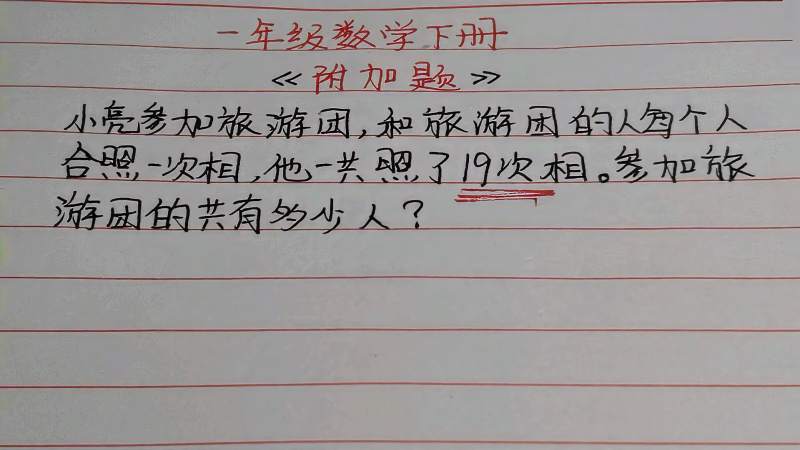 一年级数学下册
《附加题》
小亮参加旅游团,和旅游团的人每个人
合照一次相,他一共照了19次相。参加旅
游团的共有多少人?